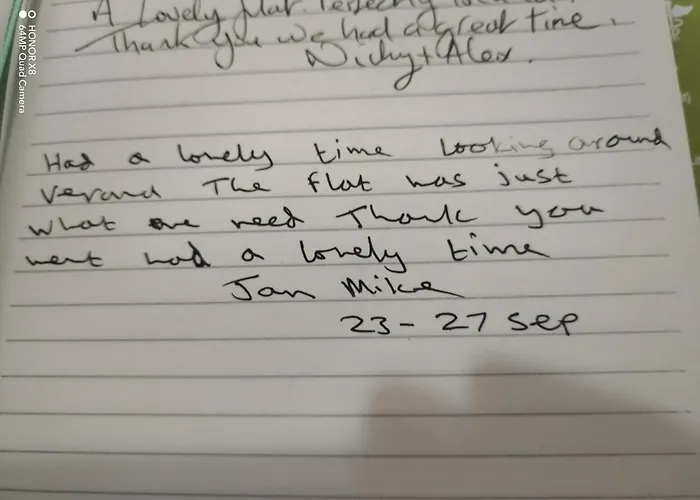 A Lovely flat Perfectly
Thank you we had a great time.
Nicky + Alex.
Had a lovely time Looking around
The flat was just
what we need Thank you
had a lovely time
Jan Mike
23 - 27 Sep
HONOR X8
64MP Quad Camera